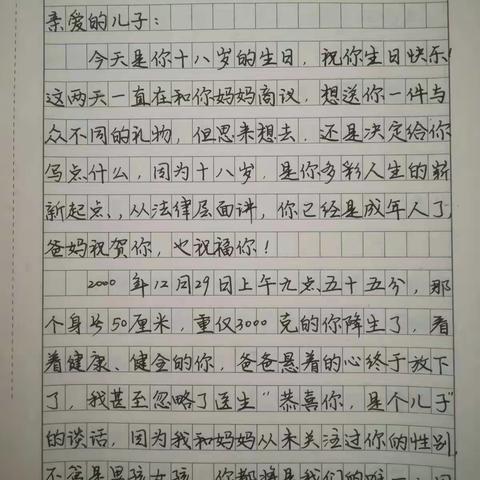 亲爱的儿子：
今天是你十八岁的生日，祝你生日快乐！
这两天一直在和你妈妈商议，想送你一件与
众不同的礼物，但思来想去，还是决定给你
写点什么，因为十八岁，是你多彩人生的崭
新起点，从法律层面讲，你已经是成年人了，
爸妈祝贺你，也祝福你！
2000年12月29日上午九点五十五分，那
个身长50厘米，重仅3000克的你降生了，看
着健康、健全的你，爸爸悬着的心终于放下
了，我甚至忽略了医生“恭喜你，是个儿子”
的谈话，因为我和妈妈从未关注过你的性别，
不管是男孩女孩，你都将是我们的唯一，因